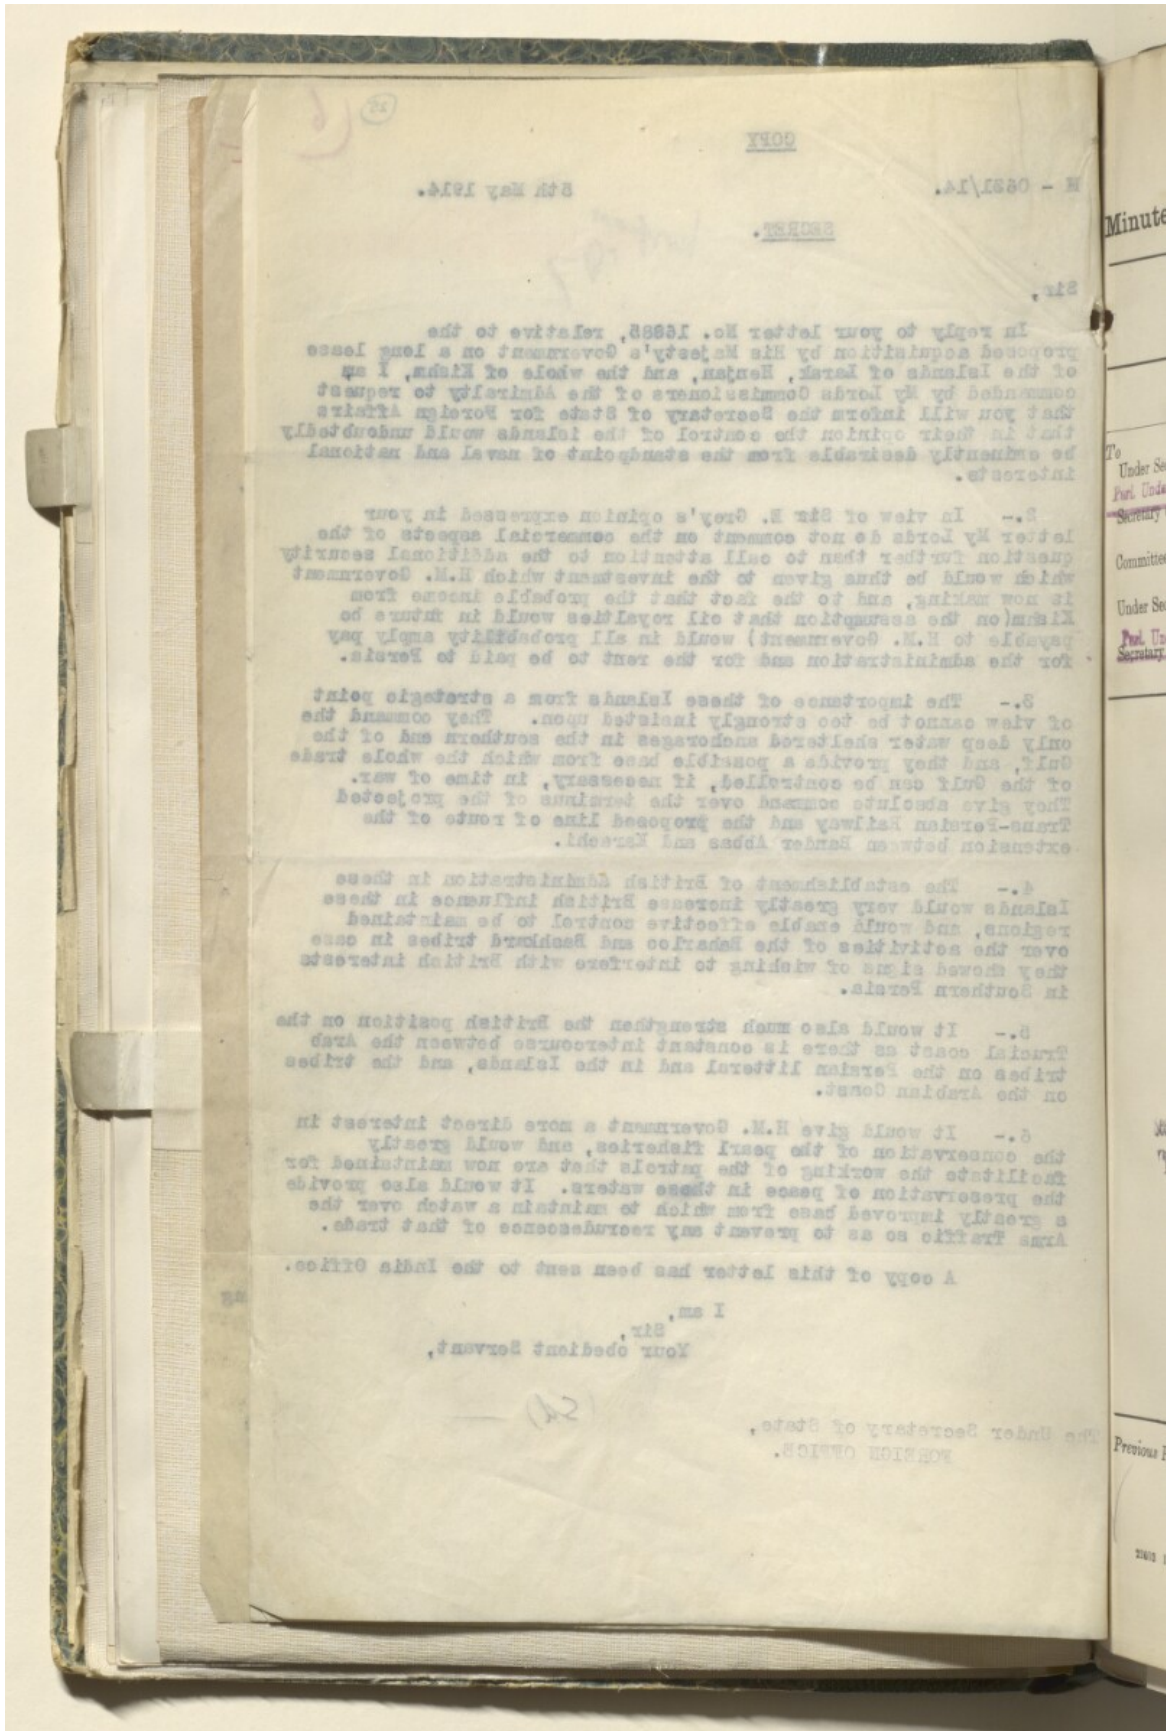 COPY
M - 0621/14. 5th May 1914.
SECRET.
Sir,
In reply to your letter No. 16885, relative to the
proposed acquisition by His Majesty's Government on a long lease
of the Islands of Larak, Henjan, and the whole of Kishm, I am
commanded by My Lords Commissioners of the Admiralty to request
that you will inform the Secretary of State for Foreign Affairs
that in their opinion the control of the islands would undoubtedly
be eminently desirable from the standpoint of naval and national
interests.
2.- In view of Sir E. Grey's opinion expressed in your
letter My Lords do not comment on the commercial aspects of the
question further than to call attention to the additional security
which would be thus given to the investment which H.M. Government
is now making, and to the fact that the probable income from
Kishm(on the assumption that oil royalties would in future be
payable to H.M. Government) would in all probability amply pay
for the administration and for the rent to be paid to Persia.
3.- The importance of these Islands from a strategic point
of view cannot be too strongly insisted upon. They command the
only deep water sheltered anchorages in the southern end of the
Gulf, and they provide a possible base from which the whole trade
of the Gulf can be controlled, if necessary, in time of war.
They give absolute command over the terminus of the projected
Trans-Persian Railway and the proposed line of route of the
extension between Bandar Abbas and Karachi.
4.- The establishment of British Administration in these
Islands would very greatly increase British influence in these
regions, and would enable effective control to be maintained
over the activities of the Baharloo and Bashkard tribes in case
they showed signs of wishing to interfere with British interests
in Southern Persia.
5.- It would also much strengthen the British position on the
Trucial coast as there is constant intercourse between the Arab
tribes on the Persian litteral and in the Islands, and the tribes
on the Arabian Coast.
6.- It would give H.M. Government a more direct interest in
the conservation of the pearl fisheries, and would greatly
facilitate the working of the patrols that are now maintained for
the preservation of peace in those waters. It would also provide
a greatly improved base from which to maintain a watch over the
Arms Traffic so as to prevent any recrudescence of that trade.
A copy of this letter has been sent to the India Office.
I am,
Sir,
Your obedient Servant,
(Sd)
The Under Secretary of State,
FOREIGN OFFICE.
Minute
To
Under Se
Parl. Unde
Secretary
Committee
Under Se
Parl. Un
Secretary
Previous